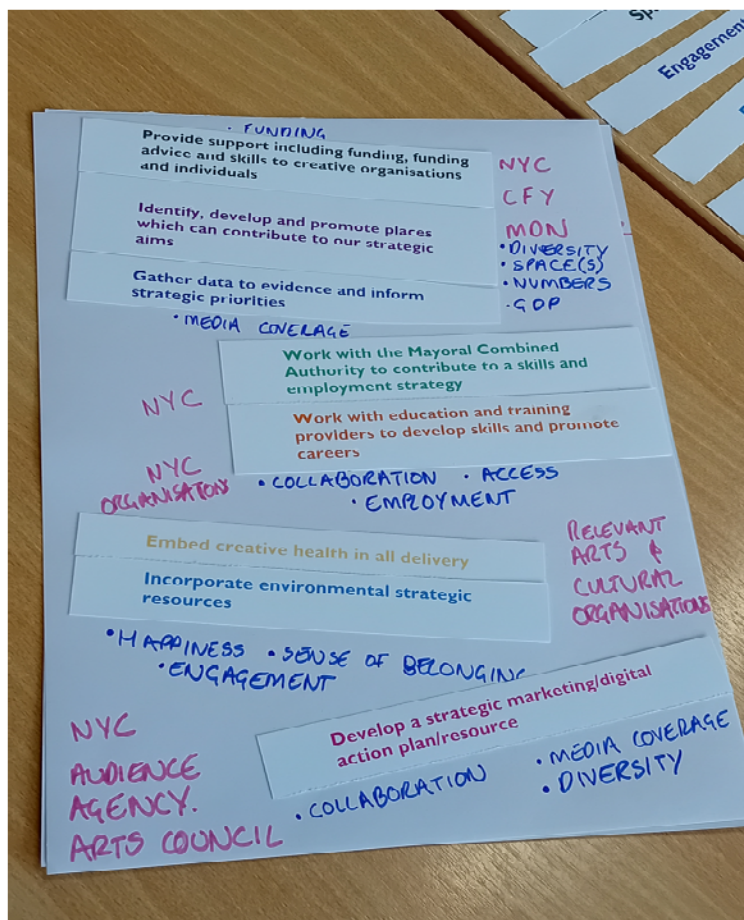 Engagement
· FUNDING
Provide support including funding, funding
advice and skills to creative organisations
and individuals
NYC
CFY
MON
Identify, develop and promote places
which can contribute to our strategic
aims
• DIVERSITY
• SPACE(S)
• NUMBERS
· GDP
Gather data to evidence and inform
strategic priorities
• MEDIA COVERAGE
Work with the Mayoral Combined
Authority to contribute to a skills and
employment strategy
NYC
Work with education and training
providers to develop skills and promote
careers
NYC
ORGANISATIONS
• COLLABORATION · ACCESS
• EMPLOYMENT
Embed creative health in all delivery
Incorporate environmental strategic
resources
RELEVANT
ARTS &
CULTURAL
ORGANISATIONS
• HAPPINESS • SENSE OF BELONGING
• ENGAGEMENT
Develop a strategic marketing/digital
action plan/resource
NYC
AUDIENCE
AGENCY.
ARTS COUNCIL
• COLLABORATION
• MEDIA COVERAGE
• DIVERSITY